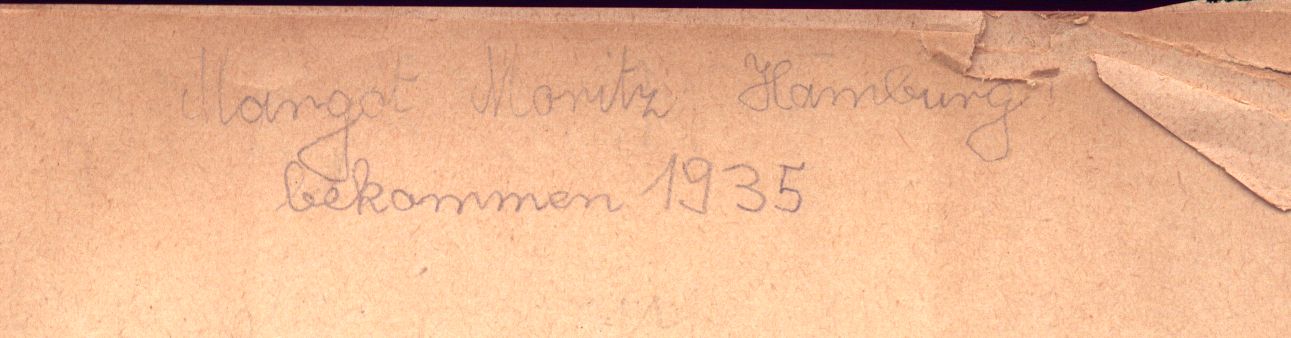 Margot Moritz Hamburg
bekommen 1935